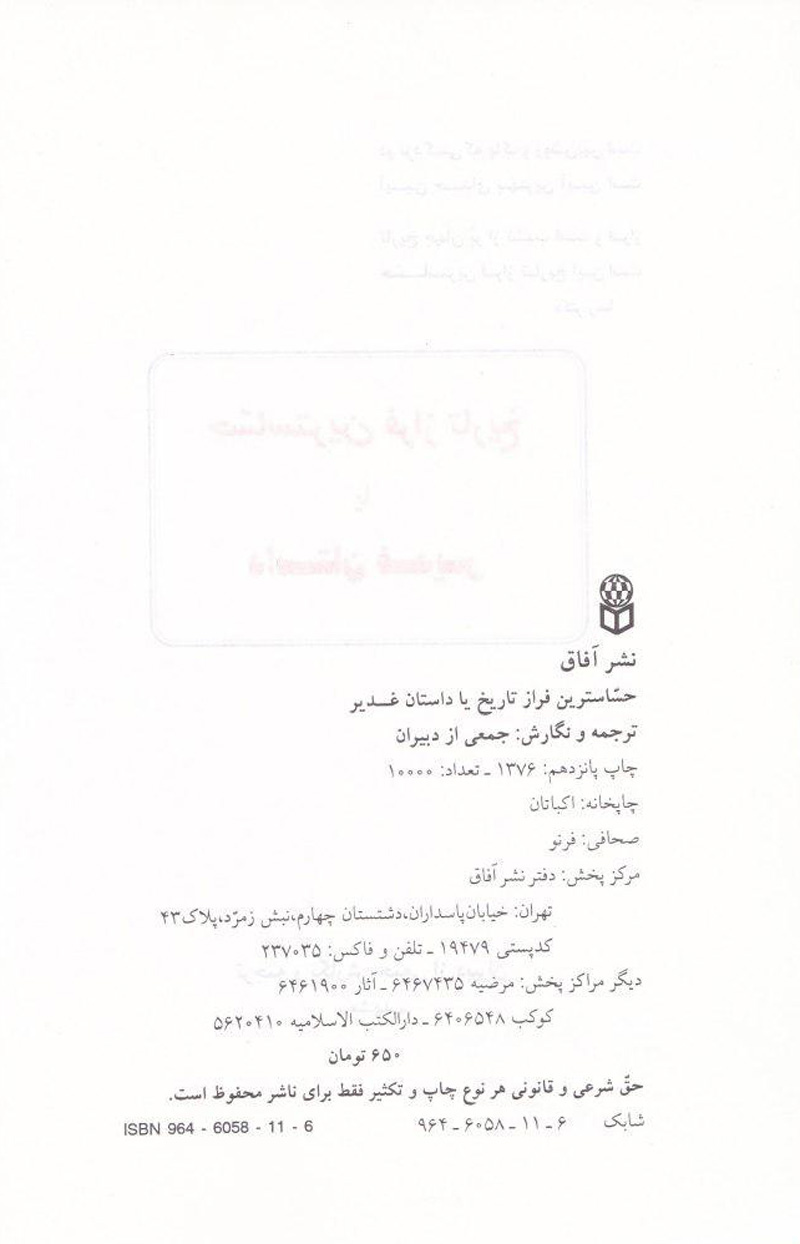 نشر آفاق
حسّاسترین فراز تاریخ یا داستان غـدیر
ترجمه و نگارش: جمعی از دبیران
چاپ پانزدهم: ۱۳۷۶ ـ تعداد: ۱۰۰۰۰
چاپخانه: اکباتان
صحافی: فرنو
مرکز پخش: دفتر نشر آفاق
تهران: خیابان پاسداران، دشتستان چهارم، نبش زمرّد، پلاک ۴۳
کدپستی ۱۹۴۷۹ ـ تلفن و فاکس: ۲۳۷۰۳۵
دیگر مراکز پخش: مرضیه ۶۴۶۷۴۳۵ ـ آثار ۶۴۶۱۹۰۰
کوکب ۶۴۰۶۵۴۸ ـ دارالکتب الاسلامیه ۵۶۲۰۴۱۰
۶۵۰ تومان
حقّ شرعی و قانونی هر نوع چاپ و تکثیر فقط برای ناشر محفوظ است.
شابک ۶ ـ ۱۱ ـ ۶۰۵۸ ـ ۹۶۴ ISBN 964 - 6058 - 11 - 6